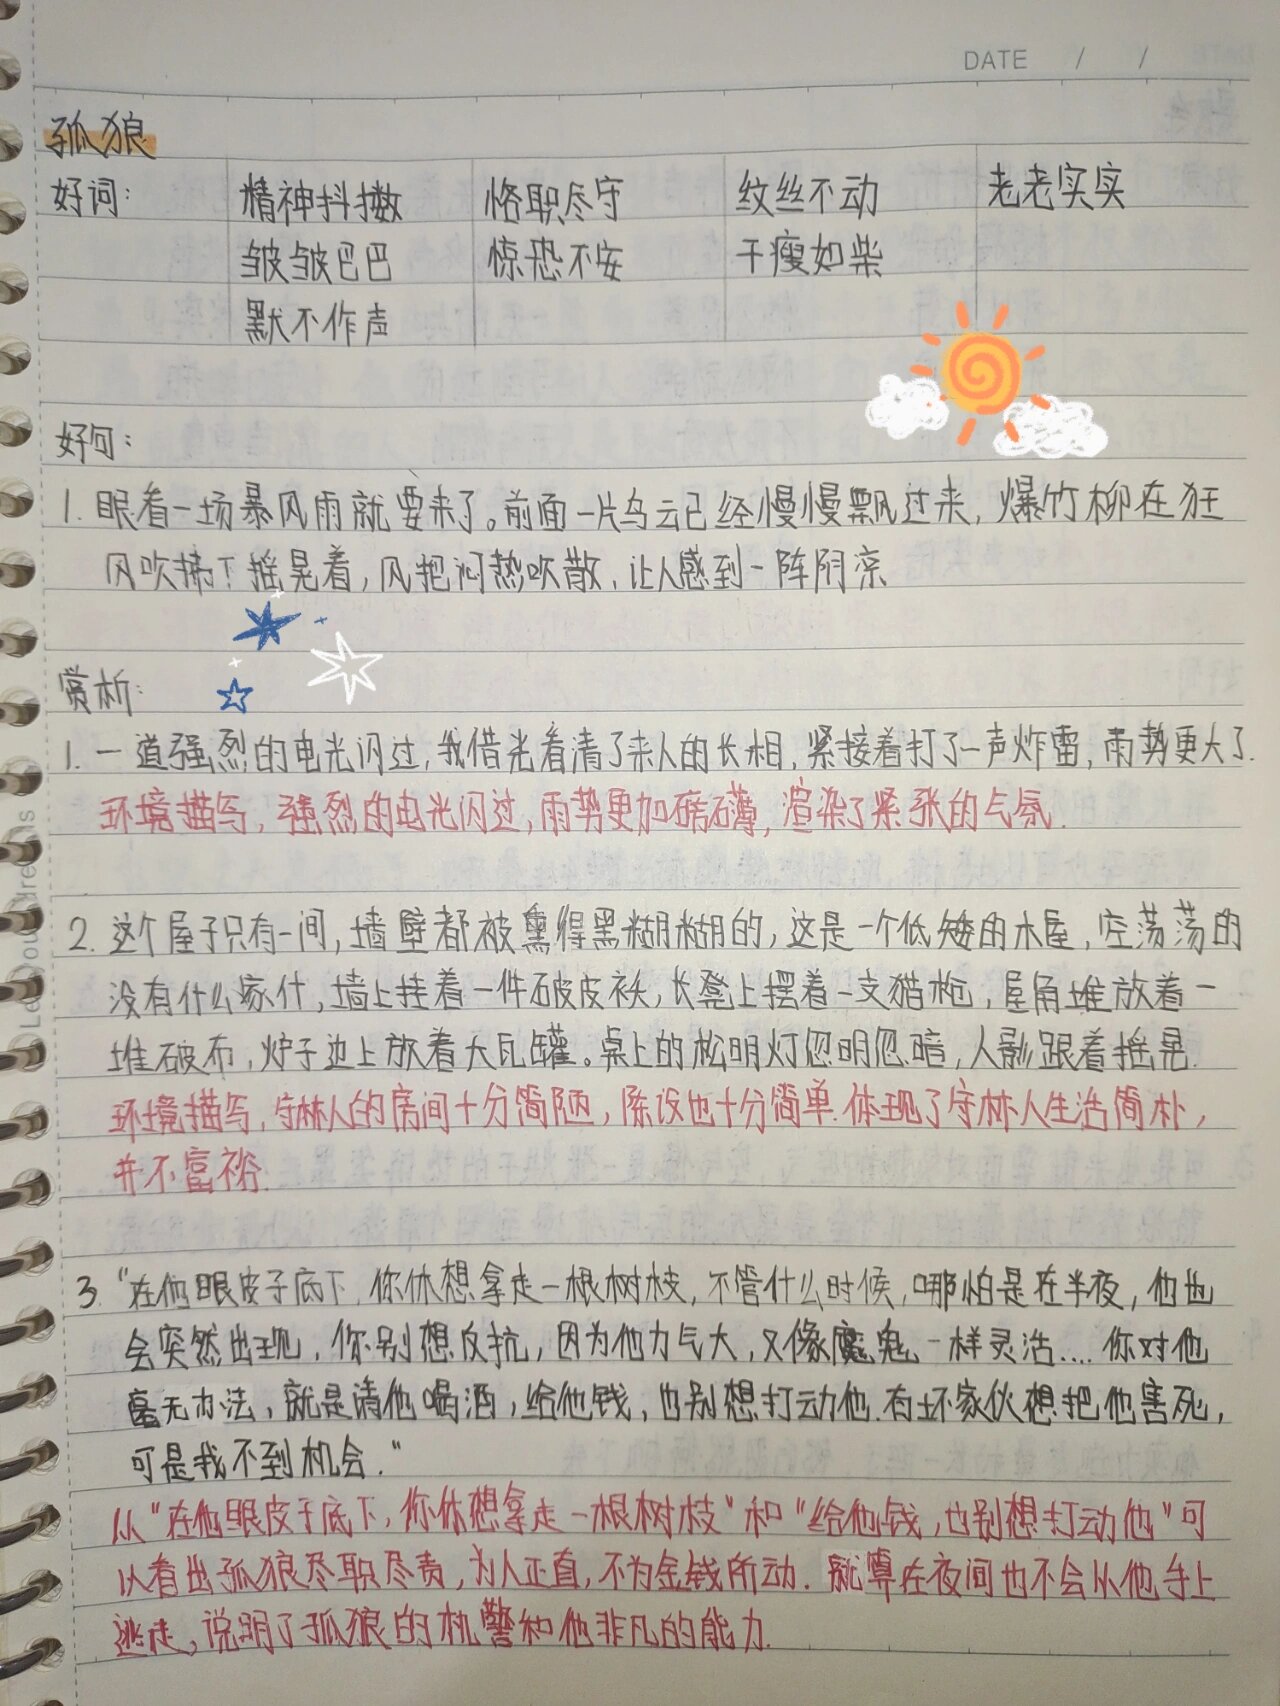 DATE / /
孤狼
好词: 精神抖擞 恪职尽守 纹丝不动 老老实实
皱皱巴巴 惊恐不安 干瘦如柴
默不作声
好句:
1. 眼看一场暴风雨就要来了。前面一片乌云已经慢慢飘过来, 爆竹柳在狂
风吹拂下摇晃着, 风把闷热吹散, 让人感到一阵阴凉
赏析:
1. 一道强烈的电光闪过, 我借光看清了来人的长相, 紧接着打了一声炸雷, 雨势更大了.
环境描写, 强烈的电光闪过, 雨势更加磅礴, 渲染了紧张的气氛.
2. 这个屋子只有一间, 墙壁都被熏得黑糊糊的, 这是一个低矮的木屋, 空荡荡的
没有什么家什, 墙上挂着一件破皮袄, 长凳上摆着一支猎枪, 屋角堆放着一
堆破布, 炉子边上放着大瓦罐。桌上的松明灯忽明忽暗, 人影跟着摇晃.
环境描写, 守林人的房间十分简陋, 陈设也十分简单. 体现了守林人生活简朴,
并不富裕.
3. "在他眼皮子底下, 你休想拿走一根树枝, 不管什么时候, 哪怕是在半夜, 他也
会突然出现, 你别想反抗, 因为他力气大, 又像魔鬼一样灵活.... 你对他
毫无办法, 就是请他喝酒, 给他钱, 也别想打动他. 有坏家伙想把他害死,
可是找不到机会."
从"在他眼皮子底下, 你休想拿走一根树枝"和"给他钱, 也别想打动他"可
以看出孤狼尽职尽责, 为人正直, 不为金钱所动. 就算在夜间也不会从他手上
逃走, 说明了孤狼的机警和他非凡的能力.